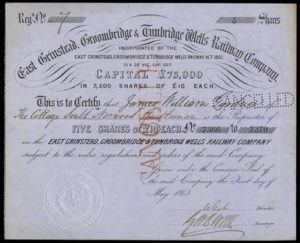 Regd. No. 7 5 Shares
East Grinstead, Groombridge & Tunbridge Wells Railway Company,
INCORPORATED BY THE
EAST GRINSTEAD, GROOMBRIDGE & TUNBRIDGE WELLS RAILWAY ACT 1862.
CAPITAL £75,000
IN 7,500 SHARES OF £10 EACH.
This is to Certify that James William
The College South Norwood is the Proprietor of
FIVE SHARES OF £10 EACH, No. 7366 to 7370
in the EAST GRINSTEAD, GROOMBRIDGE & TUNBRIDGE WELLS RAILWAY COMPANY
subject to the rules regulations and orders of the said Company
Given under the Common Seal of
the said Company the First day of
May 1863
CANCELLED